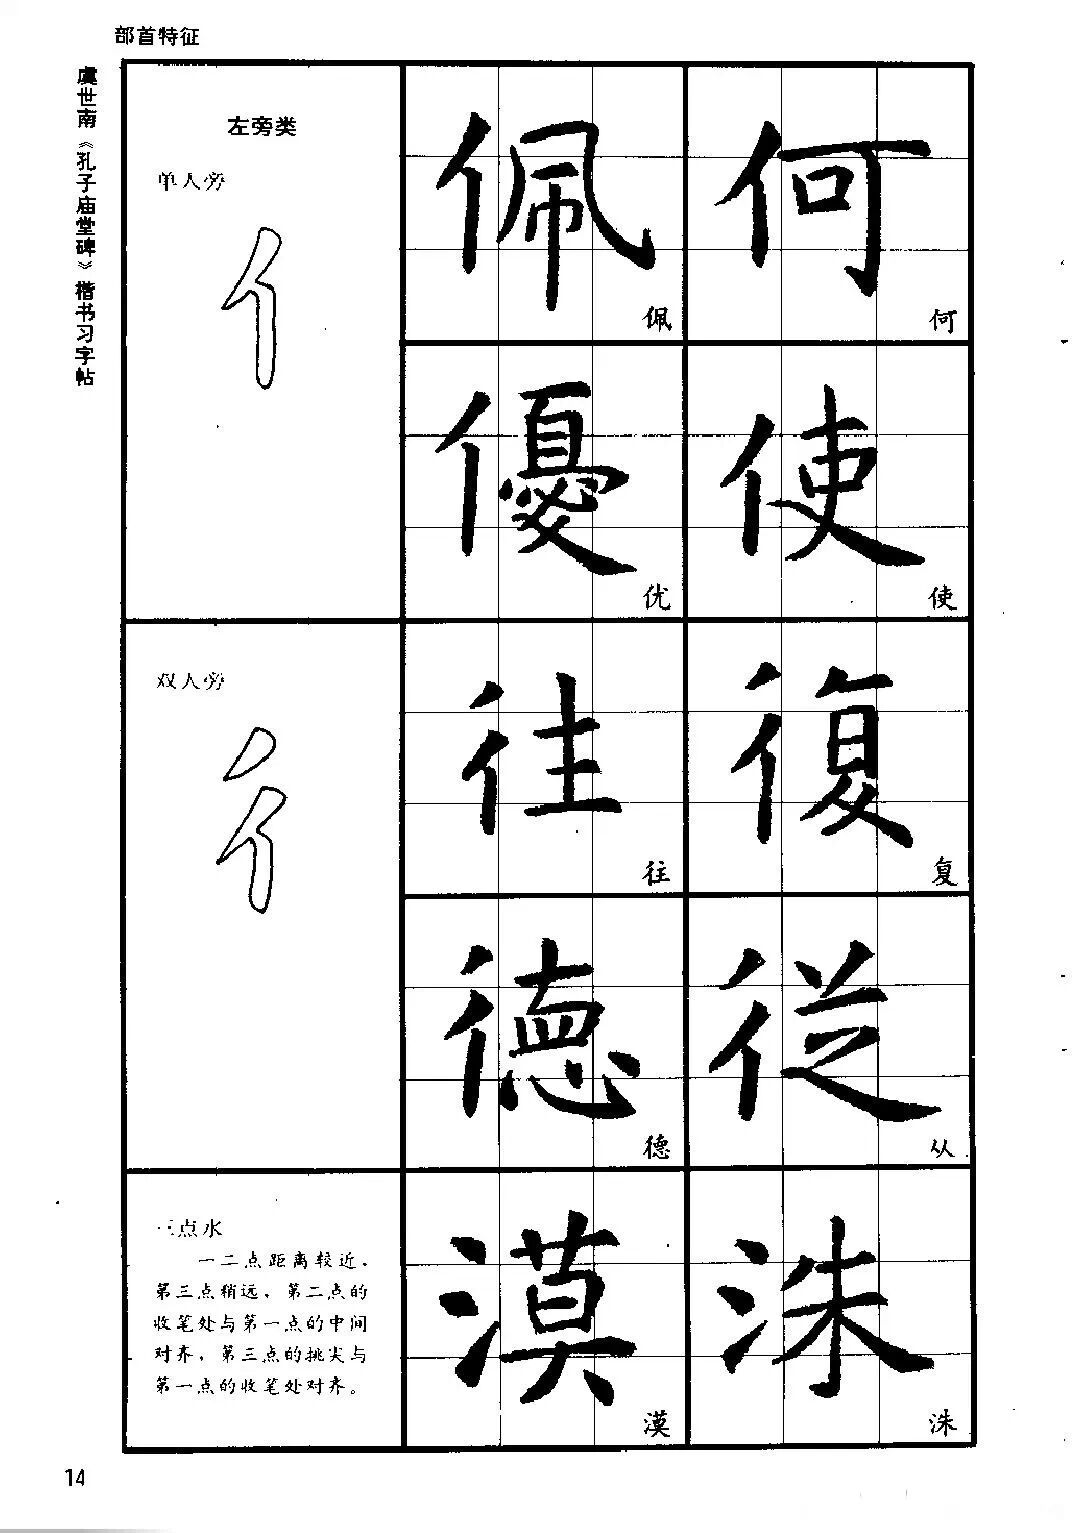 部首特征
虞世南《孔子庙堂碑》楷书习字帖
左旁类
单人旁
亻
佩 何
佩 何
優 使
优 使
双人旁
彳
往 復
往 复
德 從
德 从
三点水
一二点距离较近，
第三点稍远，第二点的
收笔处与第一点的中间
对齐，第三点的挑尖与
第一点的收笔处对齐。
漠 洙
漠 洙
14